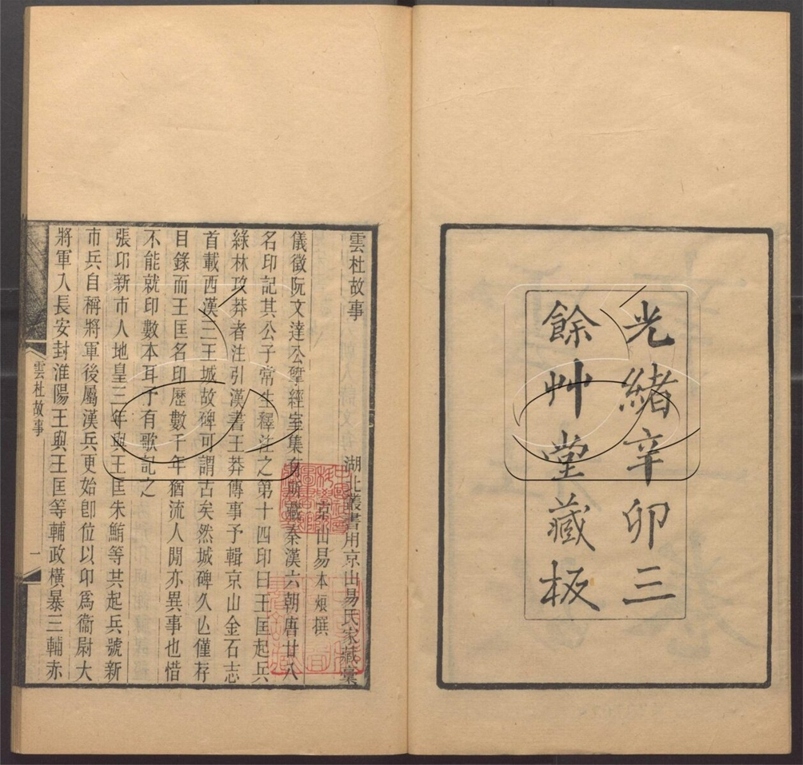 光緒辛卯三
餘艸堂藏板
雲杜故事
湖北叢書用京山易氏家藏㮣
京山易本烺撰
儀徵阮文達公揅經室集有所藏秦漢六朝唐廿八
名印記其公子常生釋注之第十四印曰王匡起兵
綠林攻莽者注引漢書王莽傳事予輯京山金石志
首載西漢三王城故碑可謂古矣然城碑久亾僅存
目錄而王匡名印歷數千年猶流人閒亦異事也惜
不能就印數本耳予有歌記之
張卭新市人地皇三年與王匡朱鮪等共起兵號新
市兵自稱將軍後屬漢兵更始卽位以卭爲衞尉大
將軍入長安封淮陽王與王匡等輔政橫暴三輔赤
雲杜故事
一